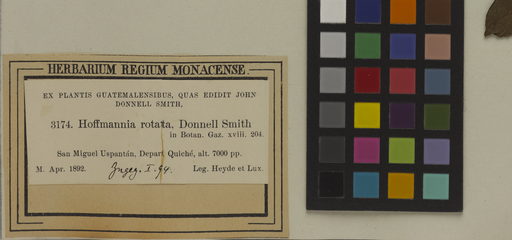 HERBARIUM REGIUM MONACENSE.
EX PLANTIS GUATEMALENSIBUS, QUAS EDIDIT JOHN
DONNELL SMITH,
3174. Hoffmannia rotata, Donnell Smith
in Botan. Gaz. xviii. 204.
San Miguel Uspantán, Depart Quiché, alt. 7000 pp.
M. Apr. 1892. I. 94. Leg. Heyde et Lux.